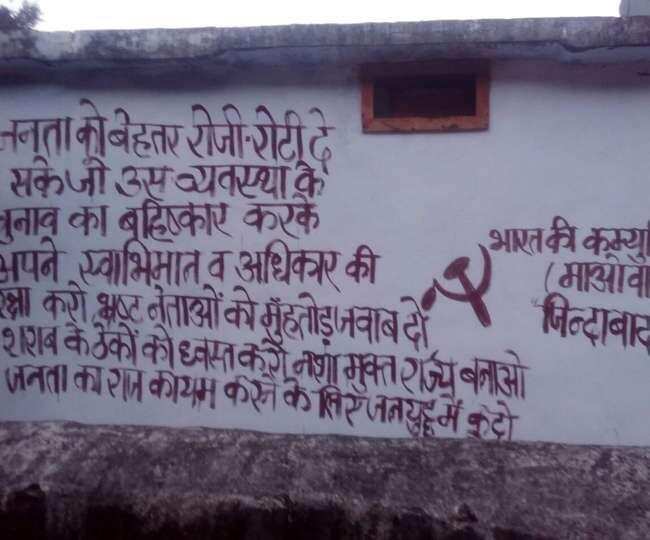 जनता को बेहतर रोजी-रोटी दे
सके जो उस व्यवस्था के
चुनाव का बहिष्कार करके
अपने स्वाभिमान व अधिकार की
रक्षा करो, भ्रष्ट नेताओं को मुँहतोड़ जवाब दो
शराब के ठेकों को ध्वस्त करो नशा मुक्त राज्य बनाओ
जनता का राज कायम करने के लिए जनयुद्ध में कूदो
भारत की कम्यु
(माओवा
जिन्दाबाद